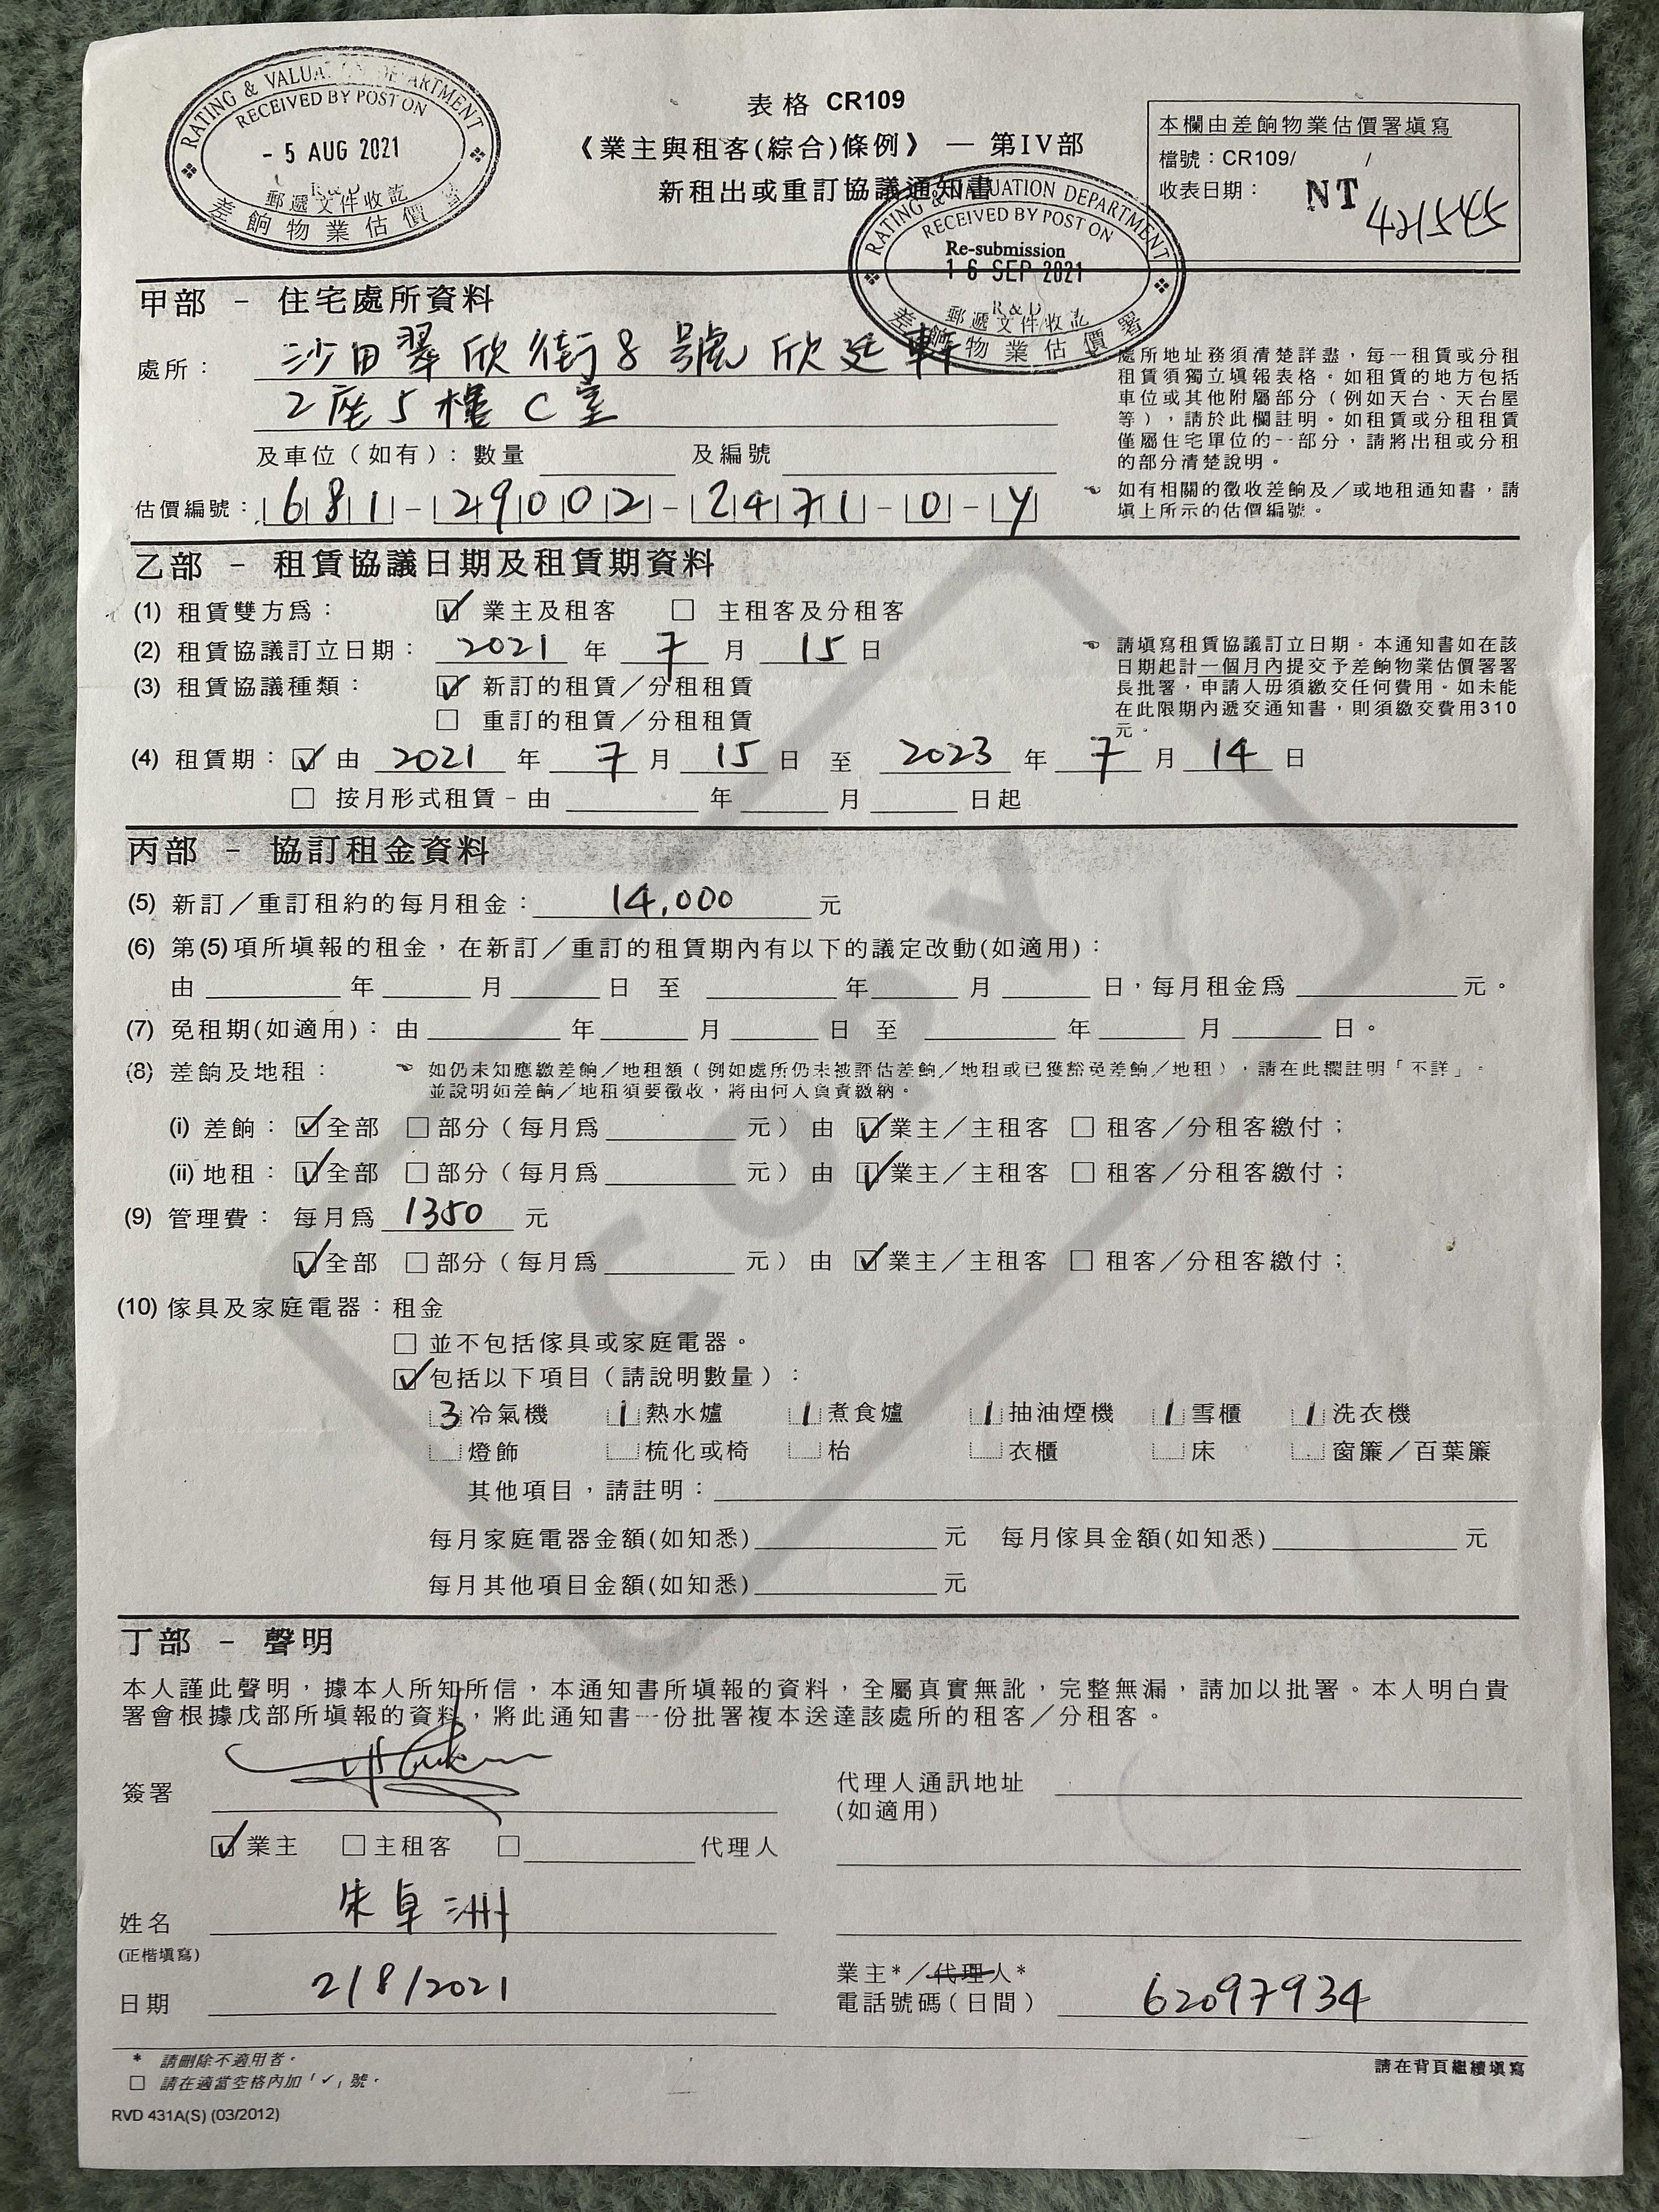 RATING & VALUATION DEPARTMENT
RECEIVED BY POST ON
- 5 AUG 2021
R&D
郵遞文件收訖
差餉物業估價署
表格 CR109
《業主與租客(綜合)條例》 — 第IV部
新租出或重訂協議通知書
本欄由差餉物業估價署填寫
檔號：CR109/ /
收表日期： NT
RATING & VALUATION DEPARTMENT
RECEIVED BY POST ON
Re-submission
16 SEP 2021
R&D
郵遞文件收訖
差餉物業估價署
甲部 － 住宅處所資料
處所： 沙田翠欣街8號欣廷軒
2座5樓C室
處所地址務須清楚詳盡，每一租賃或分租
租賃須獨立填報表格。如租賃的地方包括
車位或其他附屬部分（例如天台、天台屋
等），請於此欄註明。如租賃或分租租賃
僅屬住宅單位的一部分，請將出租或分租
的部分清楚說明。
及車位（如有）：數量 及編號
估價編號： 681-29002-2471-0-Y
如有相關的徵收差餉及／或地租通知書，請
填上所示的估價編號。
乙部 － 租賃協議日期及租賃期資料
(1) 租賃雙方爲： ☑ 業主及租客 □ 主租客及分租客
(2) 租賃協議訂立日期： 2021 年 7 月 15 日
(3) 租賃協議種類： ☑ 新訂的租賃／分租租賃
□ 重訂的租賃／分租租賃
請填寫租賃協議訂立日期。本通知書如在該
日期起計一個月內提交予差餉物業估價署署
長批署，申請人毋須繳交任何費用。如未能
在此限期內遞交通知書，則須繳交費用310
元。
(4) 租賃期： ☑ 由 2021 年 7 月 15 日 至 2023 年 7 月 14 日
□ 按月形式租賃－由 年 月 日起
丙部 － 協訂租金資料
(5) 新訂／重訂租約的每月租金： 14,000 元
(6) 第(5)項所填報的租金，在新訂／重訂的租賃期內有以下的議定改動(如適用)：
由 年 月 日 至 年 月 日，每月租金爲 元。
(7) 免租期(如適用)：由 年 月 日 至 年 月 日。
(8) 差餉及地租： 如仍未知應繳差餉／地租額（例如處所仍未被評估差餉／地租或已獲豁免差餉／地租），請在此欄註明「不詳」。
並說明如差餉／地租須要徵收，將由何人負責繳納。
(i) 差餉： ☑全部 □部分（每月爲 元） 由 ☑業主／主租客 □ 租客／分租客繳付；
(ii) 地租： ☑全部 □部分（每月爲 元） 由 ☑業主／主租客 □ 租客／分租客繳付；
(9) 管理費： 每月爲 1350 元
☑全部 □部分（每月爲 元） 由 ☑業主／主租客 □ 租客／分租客繳付；
(10) 傢具及家庭電器：租金
□ 並不包括傢具或家庭電器。
☑包括以下項目（請說明數量）：
3 冷氣機 1 熱水爐 1 煮食爐 1 抽油煙機 1 雪櫃 1 洗衣機
燈飾 梳化或椅 枱 衣櫃 床 窗簾／百葉簾
其他項目，請註明：
每月家庭電器金額(如知悉) 元 每月傢具金額(如知悉) 元
每月其他項目金額(如知悉) 元
COPY
丁部 － 聲明
本人謹此聲明，據本人所知所信，本通知書所填報的資料，全屬真實無訛，完整無漏，請加以批署。本人明白貴
署會根據戊部所填報的資料，將此通知書一份批署複本送達該處所的租客／分租客。
簽署
代理人通訊地址
(如適用)
☑業主 □主租客 □ 代理人
姓名 朱卓洲
(正楷填寫)
日期 2/8/2021
業主*／代理人*
電話號碼（日間） 62097934
* 請刪除不適用者。
□ 請在適當空格內加「✓」號。
請在背頁繼續填寫
RVD 431A(S) (03/2012)